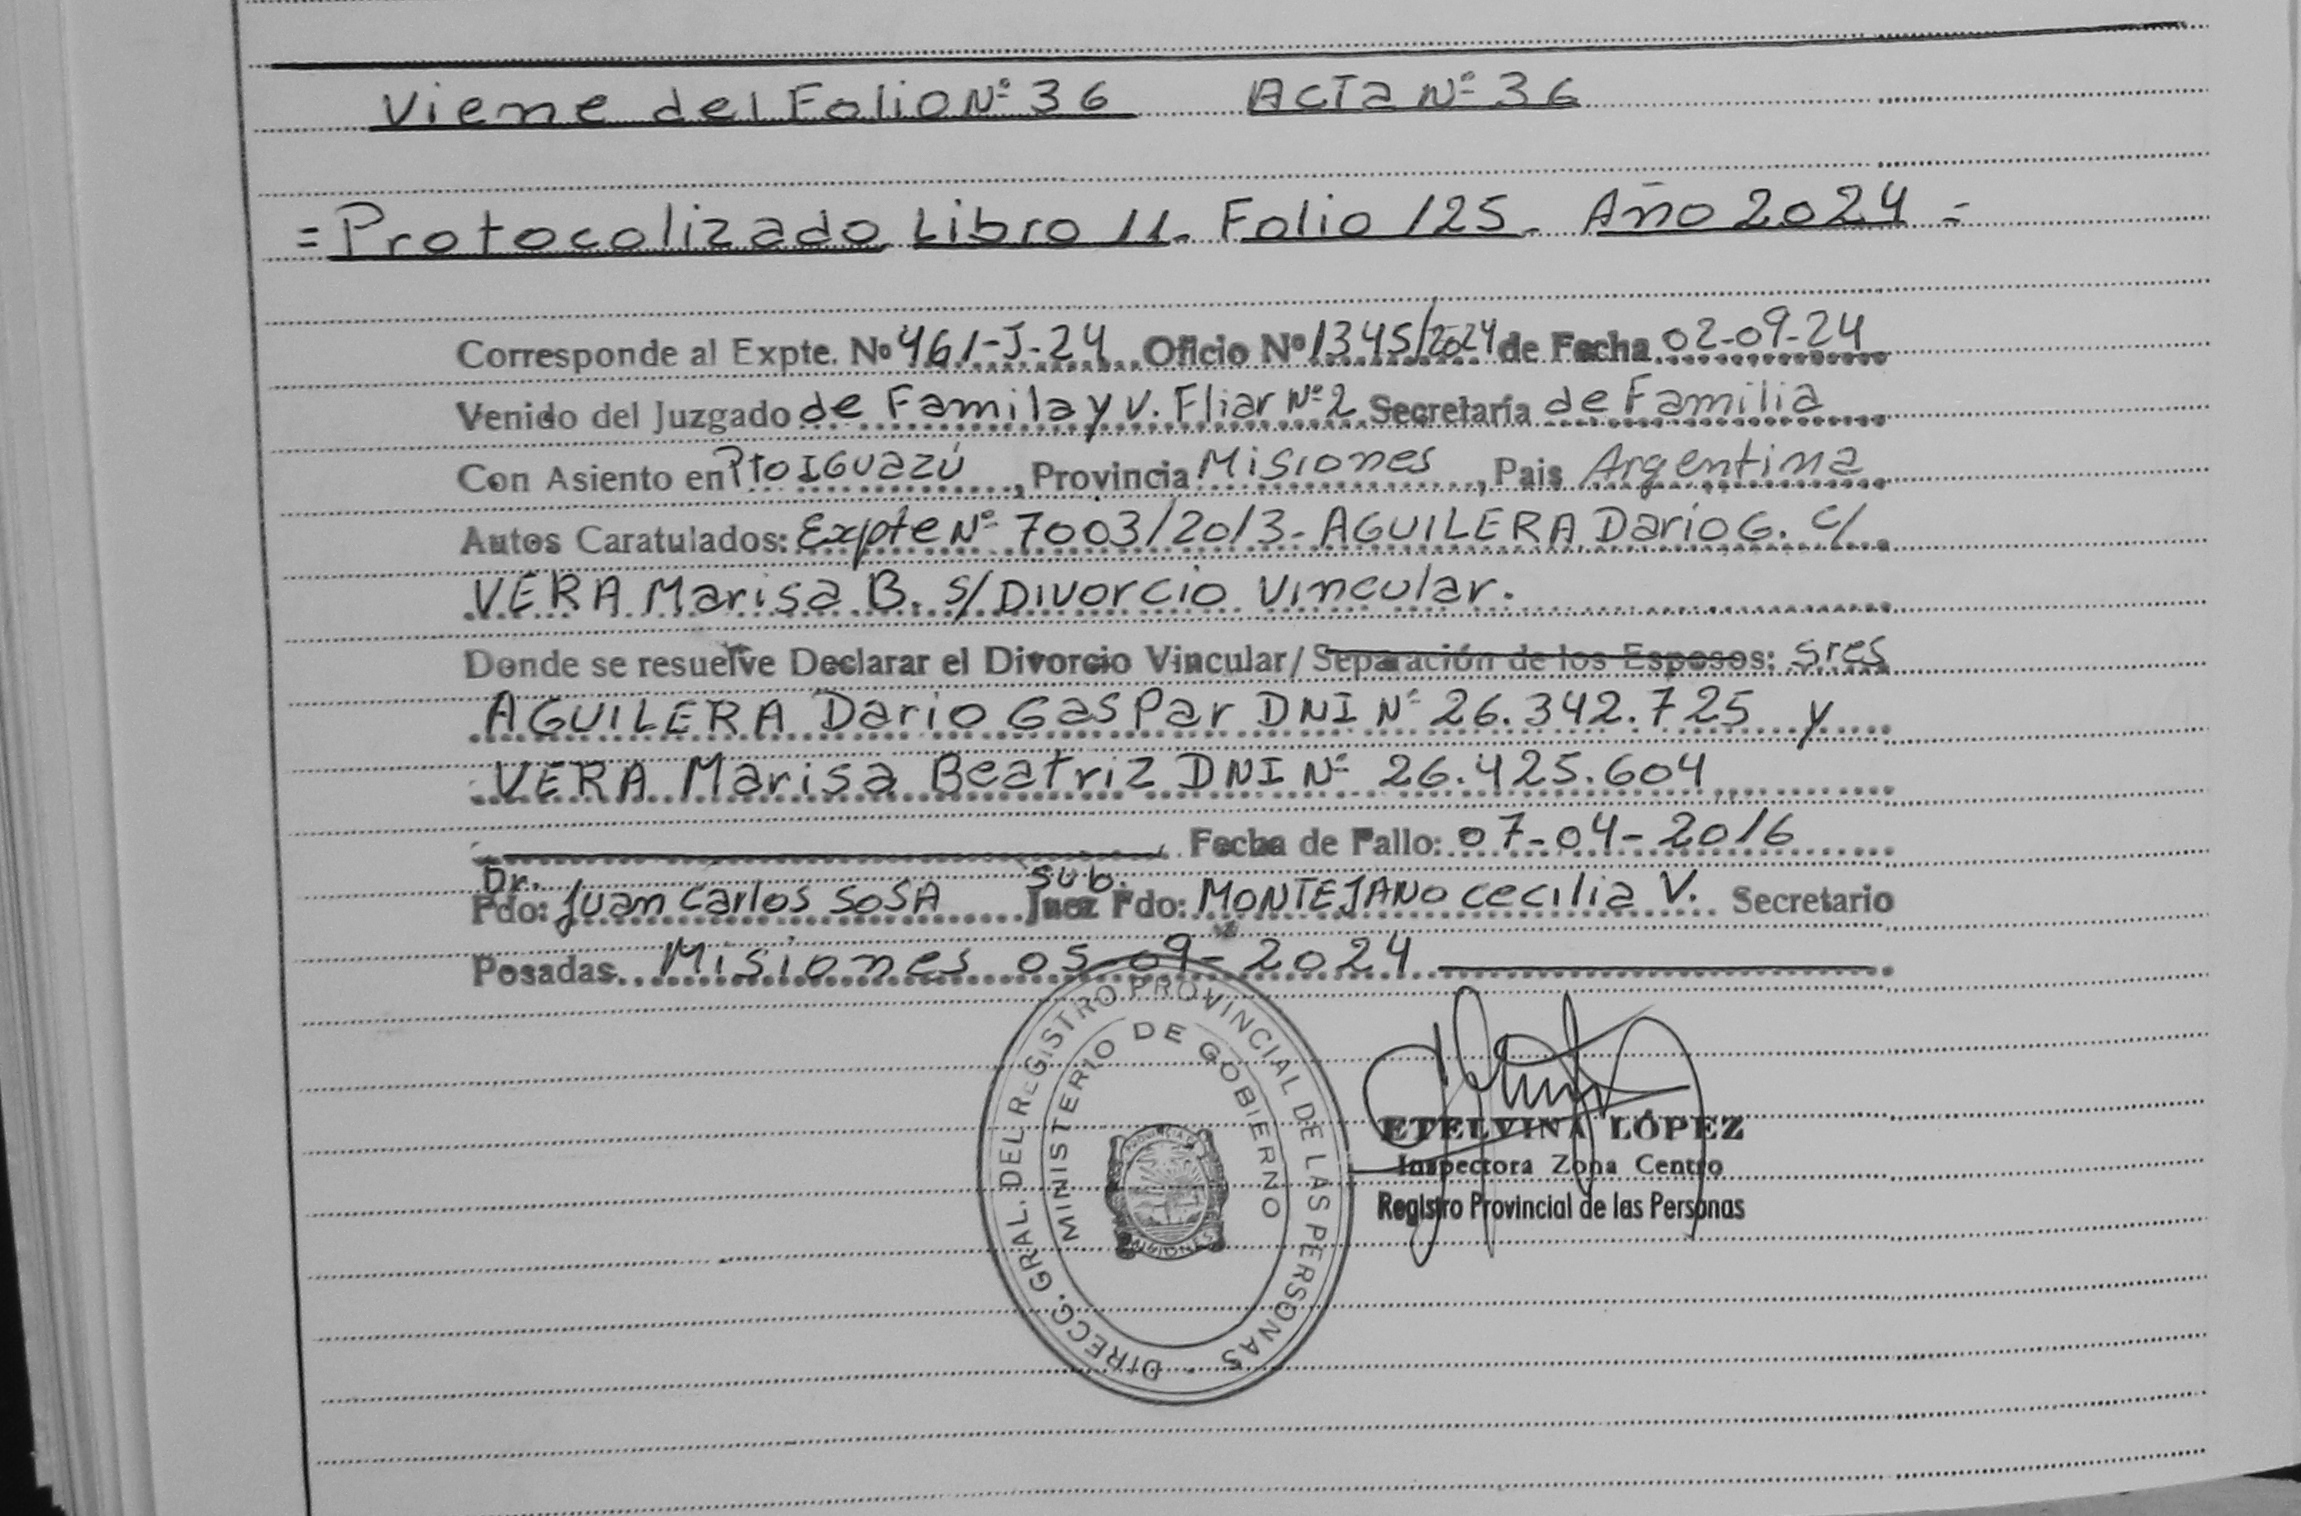 Viene del Folio Nº 36 ACTa Nº 36
= Protocolizado Libro 11. Folio 125. Año 2024 =
Corresponde al Expte. Nº 461-J-24 Oficio Nº 1345/2024 de Fecha 02-09-24
Venido del Juzgado de Familay V. Fliar Nº 2 Secretaría de Familia
Con Asiento en Pto IGuazú, Provincia Misiones, Pais Argentina
Autos Caratulados: Expte Nº 7003/2013- AGUILERA Dario G. c/
VERA Marisa B. s/ Divorcio Vincular.
Donde se resuelve Declarar el Divorcio Vincular/ Separación de los Esposos: sres
AGUILERA Dario GasPar DNI Nº 26.342.725 y
VERA Marisa Beatriz DNI Nº 26.425.604
Fecha de Fallo: 07-04-2016
Dr. Sub.
Fdo: Juan Carlos SOSA Juez Fdo: MONTEJANO Cecilia V. Secretario
Posadas. Misiones 05-09-2024
DIRECC. GRAL. DEL REGISTRO PROVINCIAL DE LAS PERSONAS
MINISTERIO DE GOBIERNO
PROVINCIA DE
MISIONES
ETELVINA LÓPEZ
Inspectora Zona Centro
Registro Provincial de las Personas